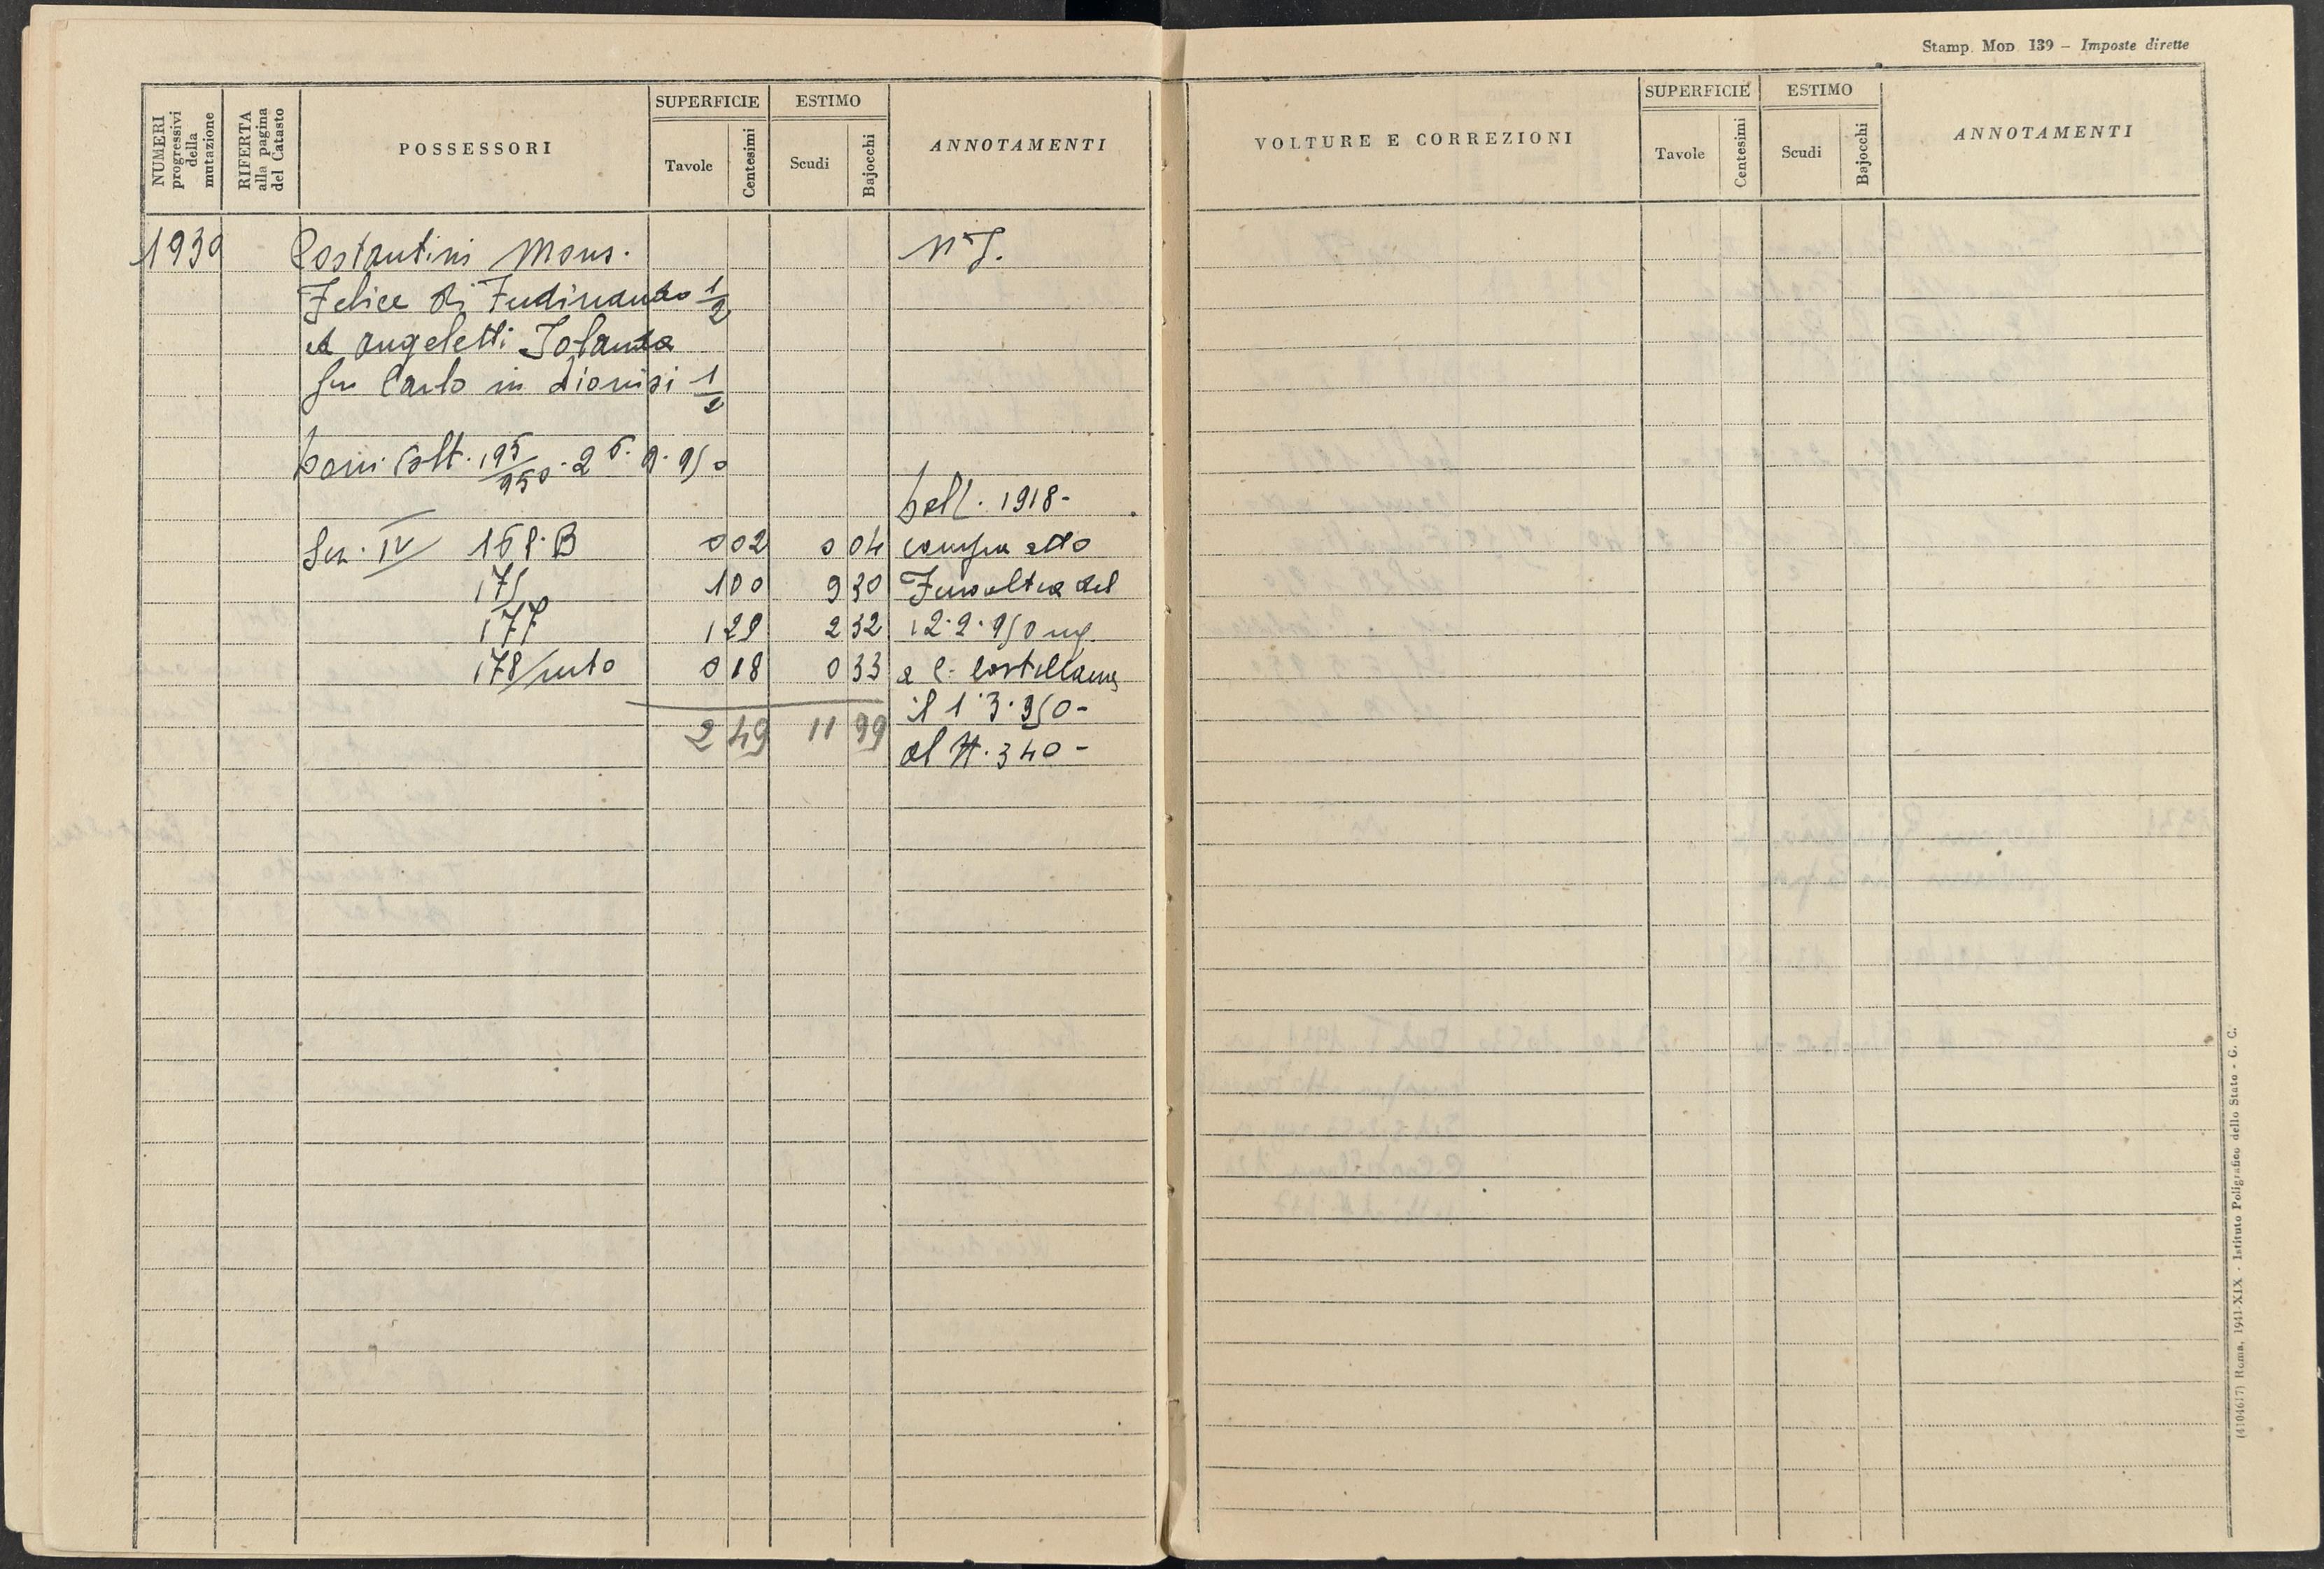 Stamp. Mod. 139 – Imposte dirette
NUMERI progressivi della mutazione
RIFERTA alla pagina del Catasto
POSSESSORI
SUPERFICIE
Tavole
Centesimi
ESTIMO
Scudi
Bajocchi
ANNOTAMENTI
VOLTURE E CORREZIONI
SUPERFICIE
Tavole
Centesimi
ESTIMO
Scudi
Bajocchi
ANNOTAMENTI
1939 Costantini Mons.
Felice di Ferdinando 1/2
ed Angeletti Iolanda
fu Carlo in Dionisi 1/2
195/950
1918-
IV 168.B 0 02 0 04 compra atto
175 1 00 9 30 del
177 1 29 2 32 12.2.950
178/ 0 18 0 33 a C. Castellana
2 49 11 99 il 1.3.950-
al N. 340-
(4104617) Roma, 1941-XIX - Istituto Poligrafico dello Stato - G. C.